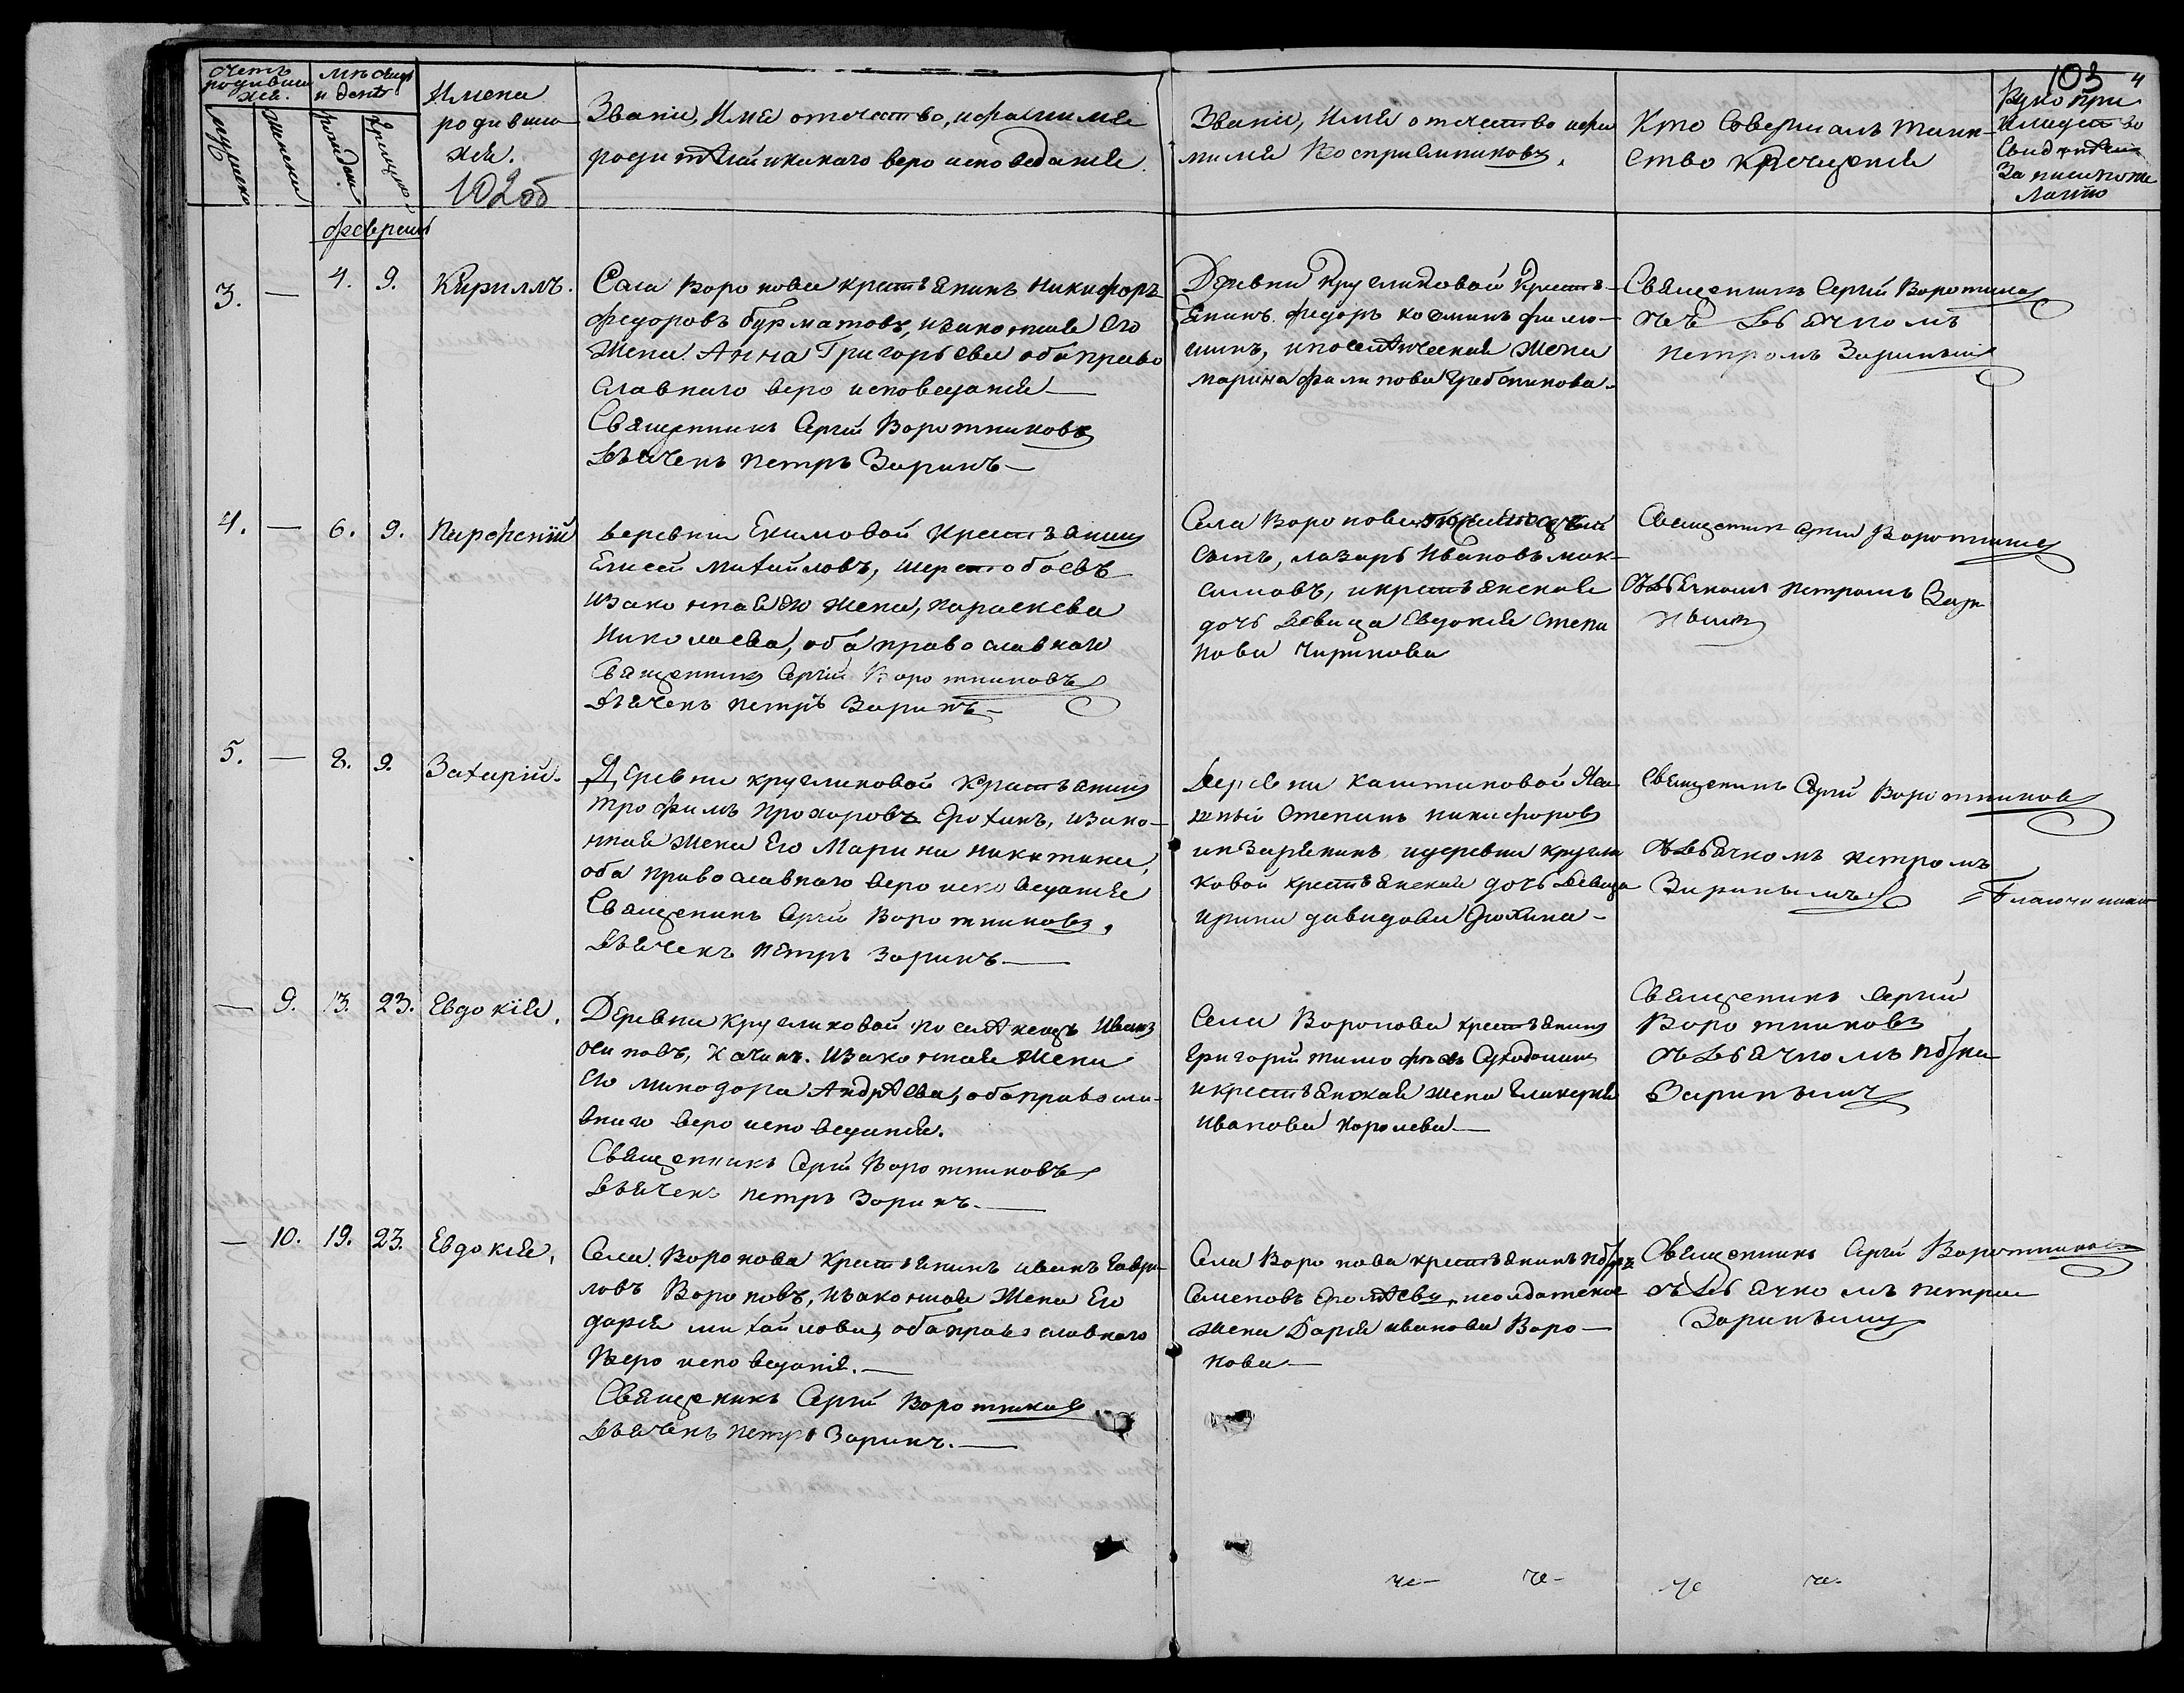 Счетъ родивши хся.
мужеска
женска
мѣсяцъ и день
рожден.
крещен.
Имена
родивши
хся.
102 об
Званіе, Имя отечество, ифамимля
родителей икакого вероисповеданія.
Званіе, Имя отечество ифа
милія Воспріемниковъ.
Кто Совершалъ таин-
ство крещенія
103 4
Руко при
кладство
Свидетелей
Записи поже
ланію
февраль
3. — 4. 9. Кириллъ.
Села Воронова крестьянинъ Никифоръ
федоровъ бурматовъ, изаконная Его
Жена Анна Григорьева оба право
славнаго вероисповеданія —
Священникъ Сергій Воротниковъ
Дьячекъ петръ Заринъ —
Деревни Кругликовой Крестья-
янинъ федоръ козминъ филю-
шинъ, ипоселическая жена
марина филипова Гребенникова-
Священникъ Сергій Воротников
съ Дьячкомъ
петромъ Заринымъ
4. — 6. 9. Парфеній
деревни Екимовой Крестьянинъ
Елисей михайловъ, шерстобоевъ
изаконная его жена, параскева
Николаева, оба православнаго
Священникъ Сергій Воротниковъ
Дьячекъ петръ Заринъ-
Села Воронова
сынъ, лазарь Ивановъ мак-
симовъ, икрестьянская
дочь Девица Евдокия Степа
нова Чирикова
Священникъ Сергій Воротников
съ Дьячкомъ петромъ Зари
нымъ
5. — 8. 9. Захарій.
Деревни кругликовой крестьянинъ
трофимъ прохоровъ Ерохинъ, изако-
нная жена Его Марина никитина,
оба православнаго вероисповеданія
Священникъ Сергій Воротниковъ,
Дьячекъ петръ заринъ —
Деревни каштаковой Яса
шный степанъ никифоровъ
инзарякинъ идеревни кругли
ковой крестьянская дочь девица
ирина давидова Ерохина-
Священникъ Сергій Воротников
съ Дьячкомъ петромъ
Заринымъ
Благочинный
— 9. 13. 23. Евдокія,
Деревни Кругликовой поселенецъ Иванъ
осиповъ, качинъ. изаконная жена
его минодора Андреева, оба правосла-
внаго вероисповеданія.
Священникъ Сергій Воротниковъ
Дьячекъ петръ Заринъ. —
Села Воронова крестьянинъ
Григорій тимофеевъ Суходолинъ
икрестьянская жена Гликерия
Иванова Королева —
Священникъ Сергій
Воротниковъ
съ Дьячкомъ петр
Заринымъ
— 10. 19. 23. Евдокія,
Села. Воронова крестьянинъ иванъ Гаври-
ловъ Вороновъ, изаконная жена Его
дарья михайлова, оба православнаго
вероисповеданія. —
Священникъ Сергій Воротников
Дьячекъ петръ Заринъ. —
Села Воронова крестьянинъ петръ
Семеновъ , исолдатская
жена Дарья иванова Воро —
нова —
Священникъ Сергій Воротников
съ Дьячкомъ петром
Заринымъ
че- че- че че-